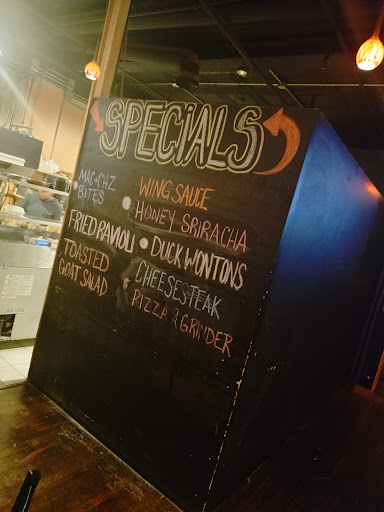 SPECiALS
MAC+CHZ
BITES
WING SAUCE
HONEY SRIRACHA
FRIED RAVIOLI
DUCK WONTONS
TOASTED
GOAT SALAD
CHEESESTEAK
PIZZA & GRINDER